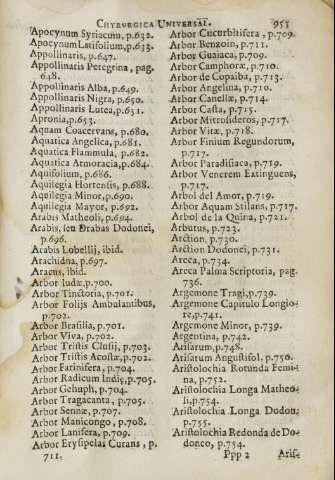 CHYRURGICA UNIVERSAL. 955
Apocynum Syriacum, p.632.
Apocynum Latifolium, p.633.
Appollinaris, p.647.
Appollinaris Peregrina, pag.
648.
Appollinaris Alba, p.649.
Appollinaris Nigra, p.650.
Appollinaris Lutea, p.651.
Apronia, p.653.
Aquam Coacervans, p.680.
Aquatica Angelica, p.681.
Aquatica Flammula, p.682.
Aquatica Armoracia, p.684.
Aquifolium, p.686.
Aquilegia Hortensis, p.688.
Aquilegia Minor, p.690.
Aquilegia Mayor, p.692.
Arabis Matheoli, p.694.
Arabis, seu Drabas Dodonei,
p.696.
Arabis Lobellij, ibid.
Arachidna, p.697.
Aracus, ibid.
Arbor Iudæ, p.700.
Arbor Tinctoria, p.701.
Arbor Folijs Ambulantibus,
p.702.
Arbor Brasilia, p.701.
Arbor Viva, p.702.
Arbor Tristis Clusij, p.703.
Arbor Tristis Acostæ, p.702.
Arbor Farinifera, p.704.
Arbor Radicum Indię, p.705.
Arbor Gehuph, p.704.
Arbor Tragacanta, p.705.
Arbor Sennæ, p.707.
Arbor Manicongo, p.708.
Arbor Lanifera, p.709.
Arbor Erysipelas Curans, p.
711.
Arbor Cucurbitifera, p.709.
Arbor Benzoin, p.711.
Arbor Guaiaca, p.709.
Arbor Camphoræ, p.710.
Arbor de Copaiba, p.713.
Arbor Angelina, p.710.
Arbor Canellæ, p.714.
Arbor Casta, p.715.
Arbor Mitrosideros, p.717.
Arbor Vitæ, p.718.
Arbor Finium Regundorum,
p.717.
Arbor Paradisiaca, p.719.
Arbor Venerem Extinguens,
p.717.
Arbol del Amor, p.719.
Arbor Aquam Stilans, p.717.
Arbol de la Quina, p.721.
Arbutus, p.723.
Arction, p.730.
Arction Dodonei, p.731.
Areca, p.734.
Areca Palma Scriptoria, pag.
736.
Argemone Tragi, p.739.
Argemone Capitulo Longio-
re, p.741.
Argemone Minor, p.739.
Argentina, p.742.
Arisarum, p.748.
Arisarum Angustifol, p.750.
Aristolochia Rotunda Femi-
na, p.752.
Aristolochia Longa Matheo-
li, p.754.
Aristolochia Longa Dodon:
p.755.
Aristolochia Redonda de Do-
donco, p.754.
Ppp 2 Aris-